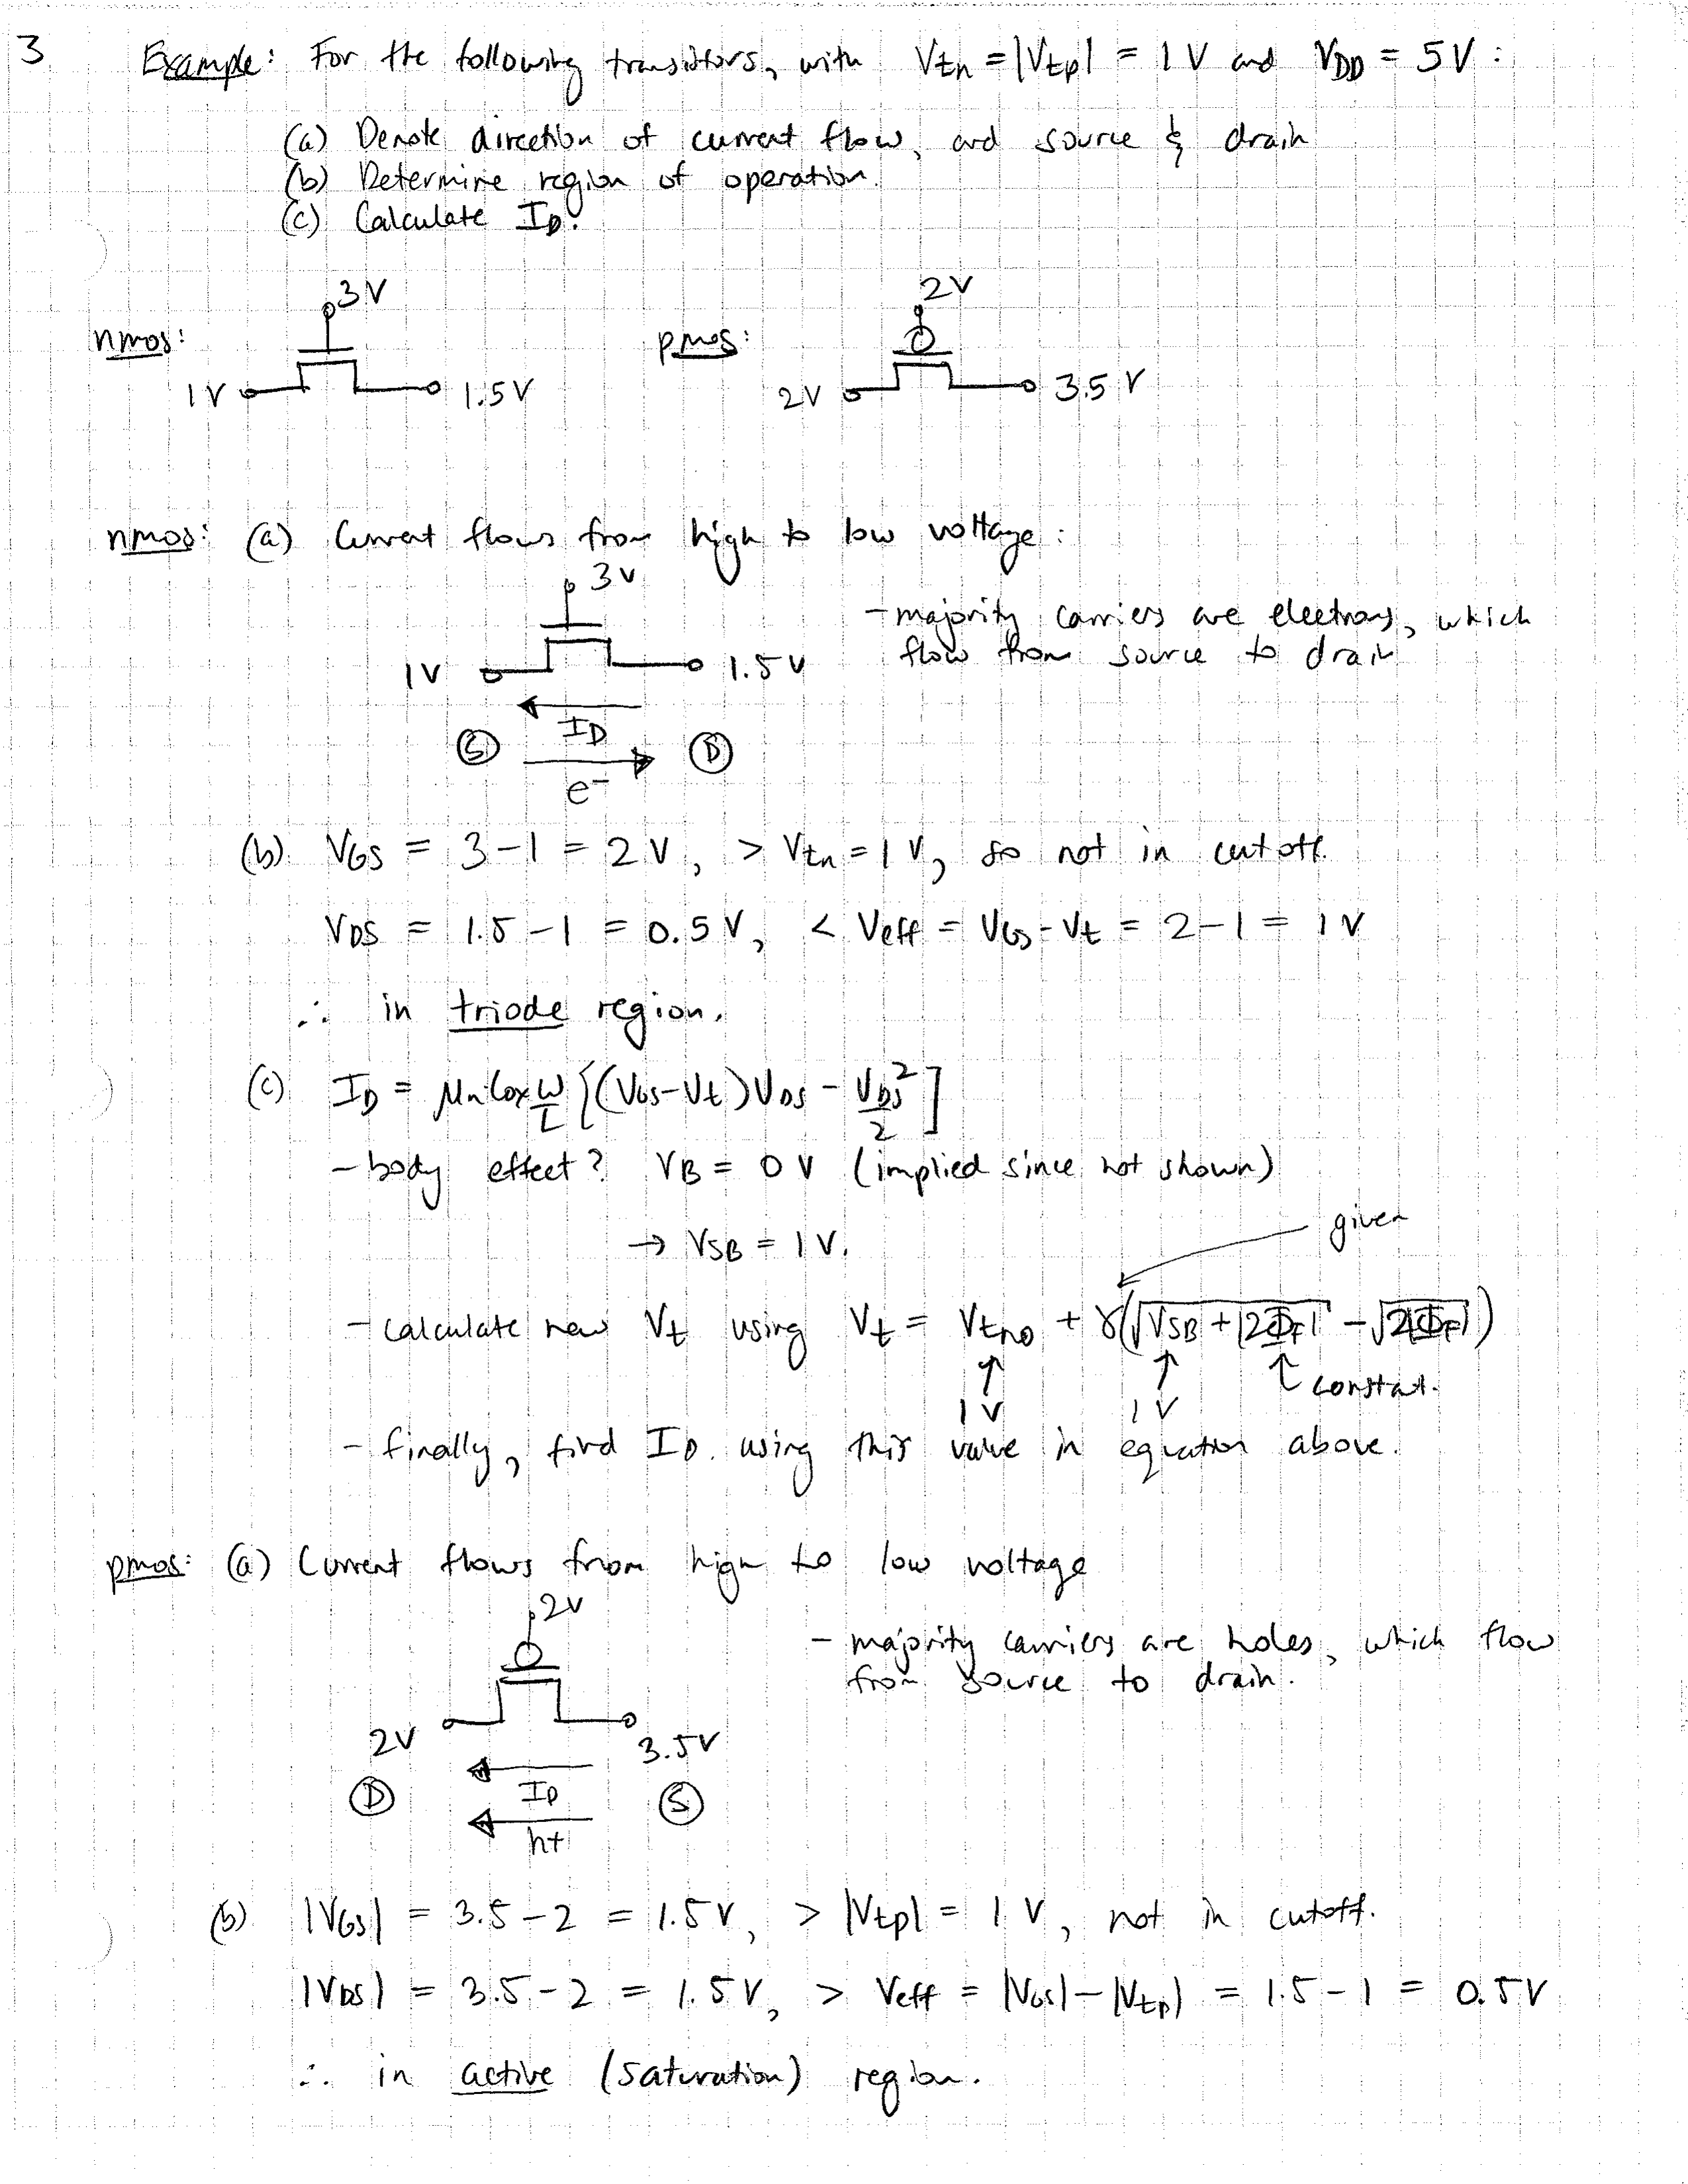 3
Example: For the following transistors, with Vtn = |Vtp| = 1 V and VDD = 5 V:
(a) Denote direction of current flow, and source & drain
(b) Determine region of operation.
(c) Calculate ID.
nmos:
3V
1V
1.5V
pmos:
2V
2V
3.5 V
nmos: (a) Current flows from high to low voltage:
3V
1V
1.5V
- majority carriers are electrons, which
flow from source to drain
ID
S
D
e-
(b) VGS = 3-1 = 2V, > Vtn = 1 V, so not in cutoff.
VDS = 1.5-1 = 0.5V, < Veff = VGS-Vt = 2-1 = 1V
∴ in triode region.
(c) ID = μnCox W/L [(VGS-Vt)VDS - VDS²/2]
- body effect? VB = 0 V (implied since not shown)
→ VSB = 1V.
given
- calculate new Vt using Vt = Vtno + γ(√VSB + |2ΦF| - √|2ΦF|)
↑ ↑ ↑ constant.
1V 1V
- finally, find ID using this value in equation above.
pmos: (a) Current flows from high to low voltage
2V
- majority carriers are holes, which flow
from source to drain.
2V
3.5V
D
ID
S
h+
(b) |VGS| = 3.5-2 = 1.5V, > |Vtp| = 1 V, not in cutoff.
|VDS| = 3.5-2 = 1.5V, > Veff = |VGS|-|Vtp| = 1.5-1 = 0.5V
∴ in active (saturation) region.